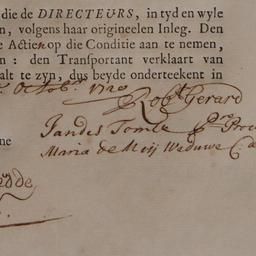 die de DIRECTEURS, in tyd en wyle
n, volgens haar origineelen Inleg. Den
e Actien op die Conditie aan te nemen,
n: den Transportant verklaart van
alt te zyn, dus beyde onderteekent in
Octob. 1720
Robt Gerard
Jan des Tombe
ne
Maria de Meij Weduwe